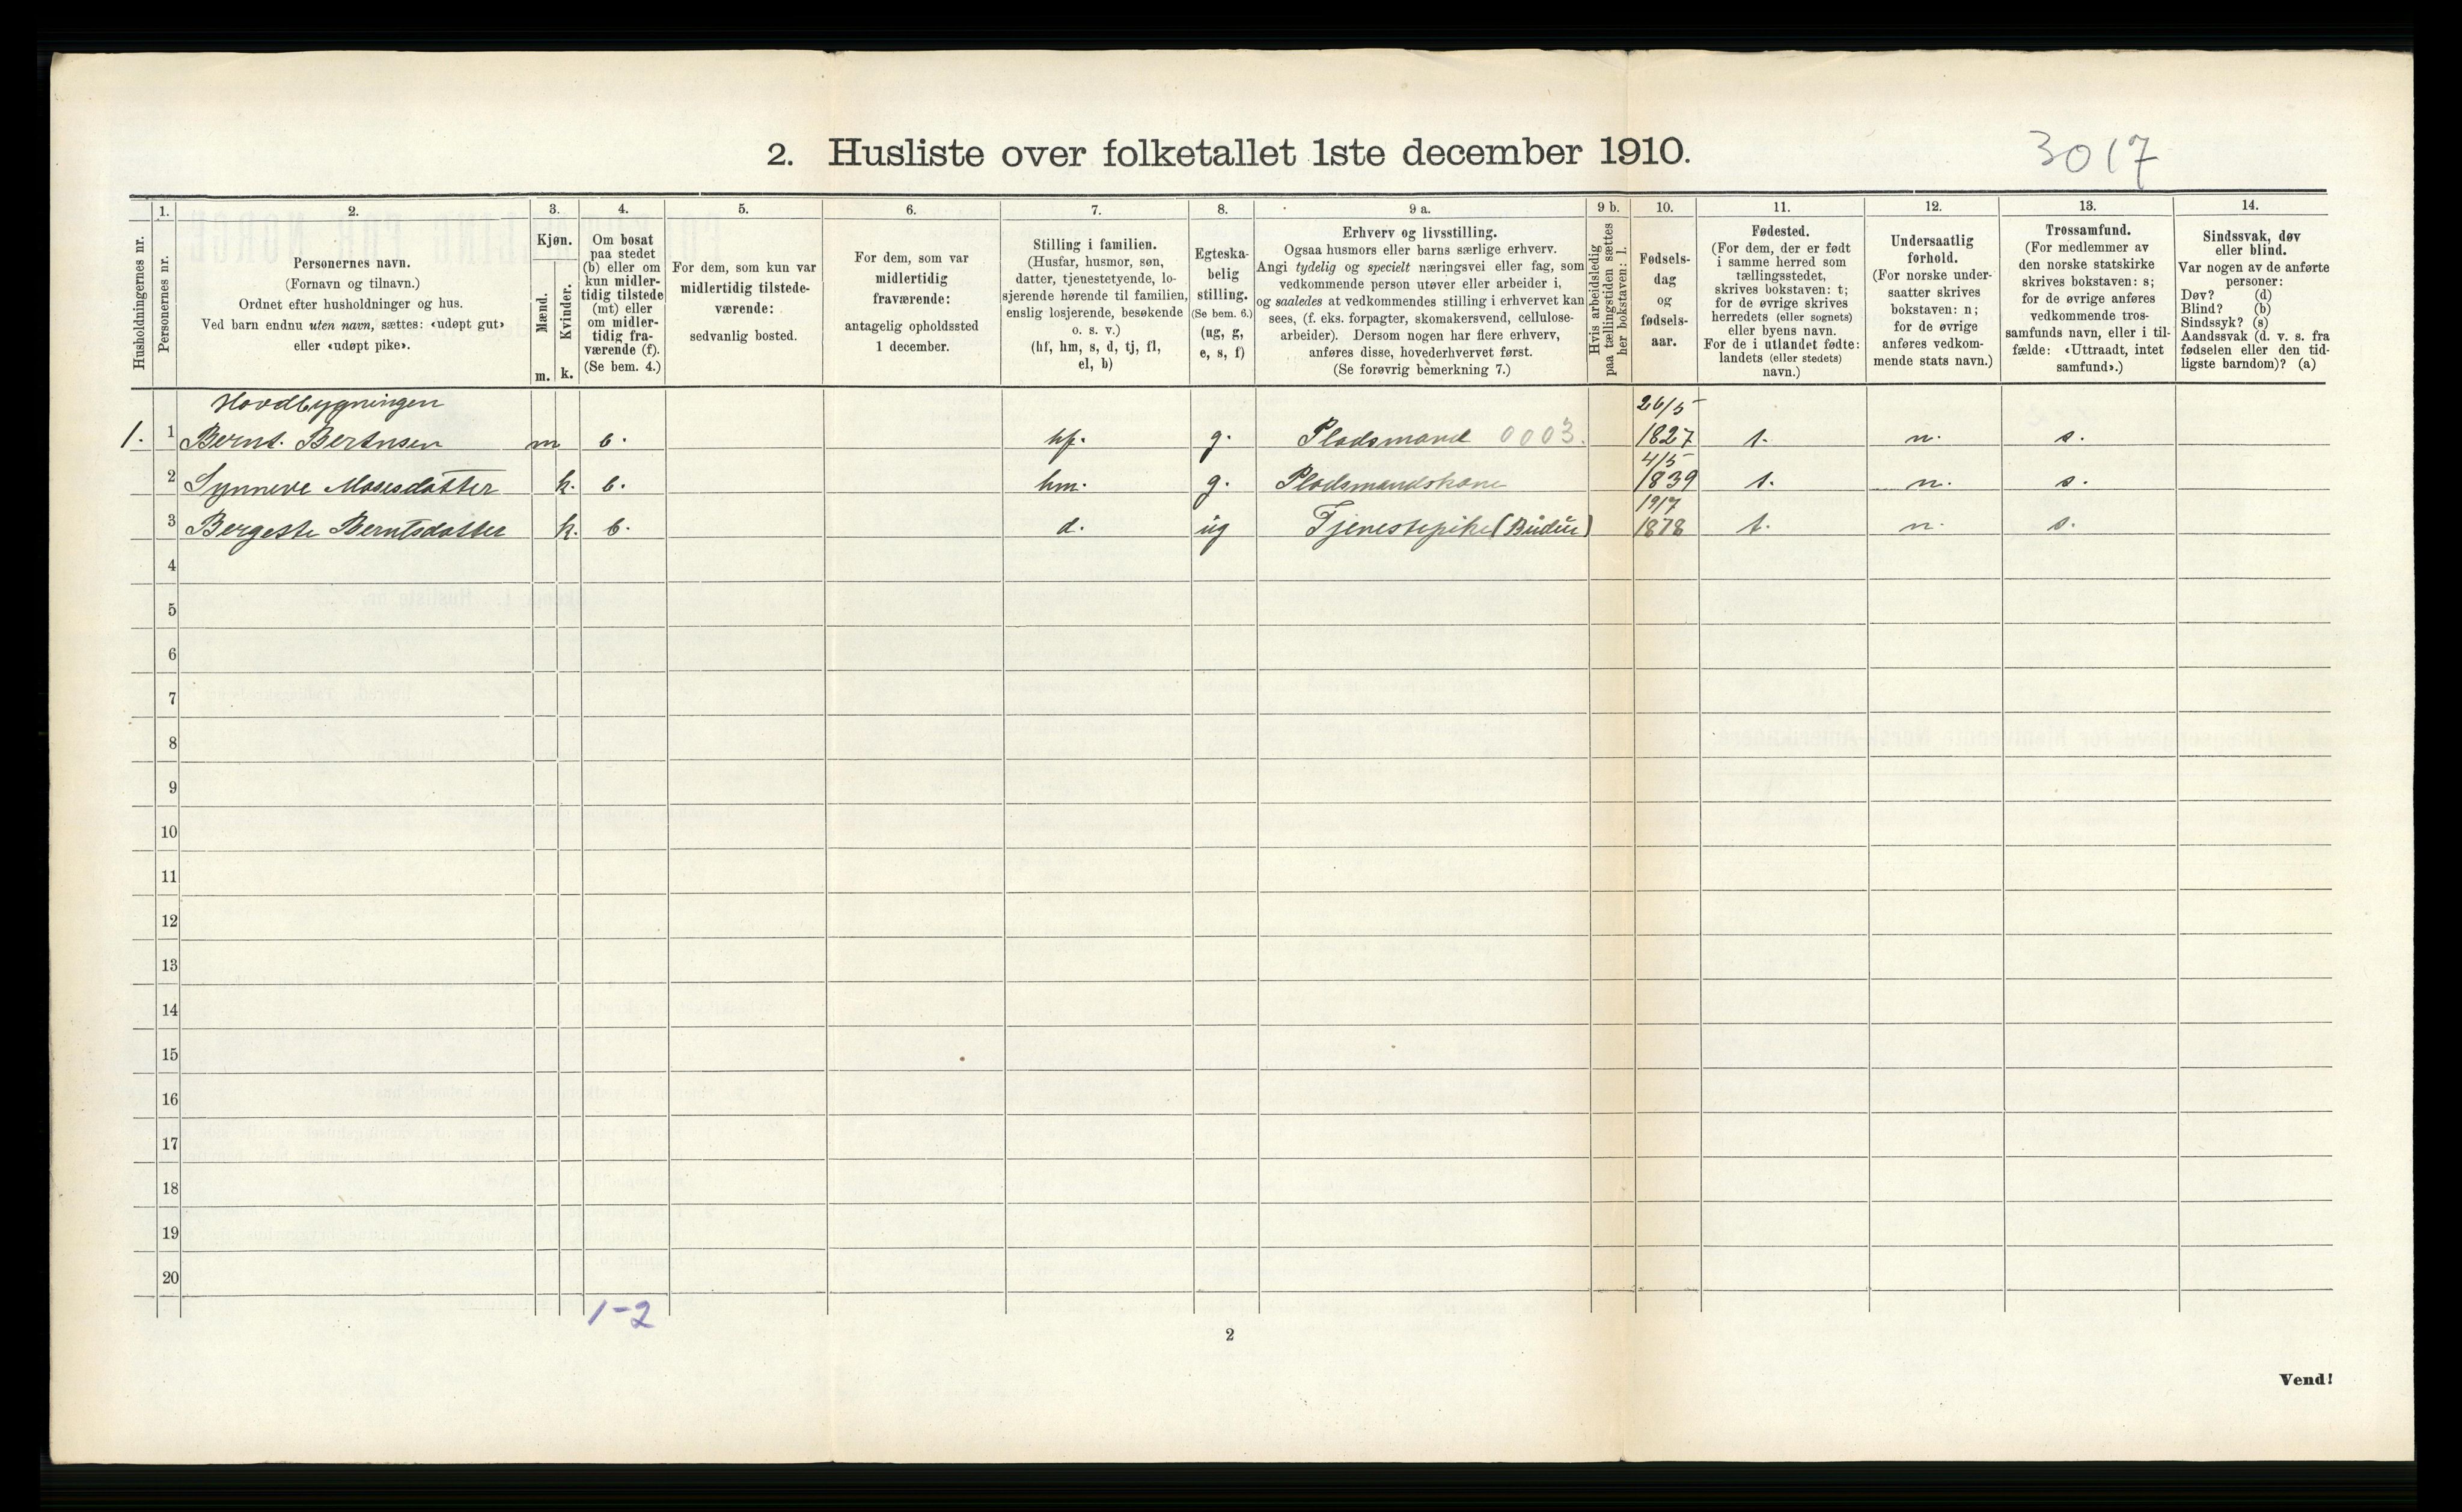 2. Husliste over folketallet 1ste december 1910.
3017
Husholdningernes nr.
1.
Personernes nr.
2.
Personernes navn.
(Fornavn og tilnavn.)
Ordnet efter husholdninger og hus.
Ved barn endnu uten navn, sættes: «udøpt gut»
eller «udøpt pike».
3.
Kjøn.
Mænd.
Kvinder.
m.
k.
4.
Om bosat
paa stedet
(b) eller om
kun midler-
tidig tilstede
(mt) eller
om midler-
tidig fra-
værende (f).
(Se bem. 4.)
5.
For dem, som kun var
midlertidig tilstede-
værende:
sedvanlig bosted.
6.
For dem, som var
midlertidig
fraværende:
antagelig opholdssted
1 december.
7.
Stilling i familien.
(Husfar, husmor, søn,
datter, tjenestetyende, lo-
sjerende hørende til familien,
enslig losjerende, besøkende
o. s. v.)
(hf, hm, s, d, tj, fl,
el, b)
8.
Egteska-
belig
stilling.
(Se bem. 6.)
(ug, g,
e, s, f)
9 a.
Erhverv og livsstilling.
Ogsaa husmors eller barns særlige erhverv.
Angi tydelig og specielt næringsvei eller fag, som
vedkommende person utøver eller arbeider i,
og saaledes at vedkommendes stilling i erhvervet kan
sees, (f. eks. forpagter, skomakersvend, cellulose-
arbeider). Dersom nogen har flere erhverv,
anføres disse, hovederhvervet først.
(Se forøvrig bemerkning 7.)
9 b.
Hvis arbeidsledig
paa tællingstiden sættes
her bokstaven: l.
10.
Fødsels-
dag
og
fødsels-
aar.
11.
Fødested.
(For dem, der er født
i samme herred som
tællingsstedet,
skrives bokstaven: t;
for de øvrige skrives
herredets (eller sognets)
eller byens navn.
For de i utlandet fødte:
landets (eller stedets)
navn.)
12.
Undersaatlig
forhold.
(For norske under-
saatter skrives
bokstaven: n;
for de øvrige
anføres vedkom-
mende stats navn.)
13.
Trossamfund.
(For medlemmer av
den norske statskirke
skrives bokstaven: s;
for de øvrige anføres
vedkommende tros-
samfunds navn, eller i til-
fælde: «Uttraadt, intet
samfund».)
14.
Sindssvak, døv
eller blind.
Var nogen av de anførte
personer:
Døv? (d)
Blind? (b)
Sindssyk? (s)
Aandssvak (d. v. s. fra
fødselen eller den tid-
ligste barndom)? (a)
Hovdbygningen
1. 1 Bernt. Berntsen m b. hf. g. Pladsmand 0003. 26/5 1827 t. n. s.
2 Synneve Mosesdatter k. b. hm. g. Pladsmandskone 4/5 1839 t. n. s.
3 Bergette Berntsdatter k. b. d. ug Tjenestepike (Budeie) 19/7 1878 t. n. s.
4
5
6
7
8
9
10
11
12
13
14
15
16
17
18
19
20
1-2
2
Vend!